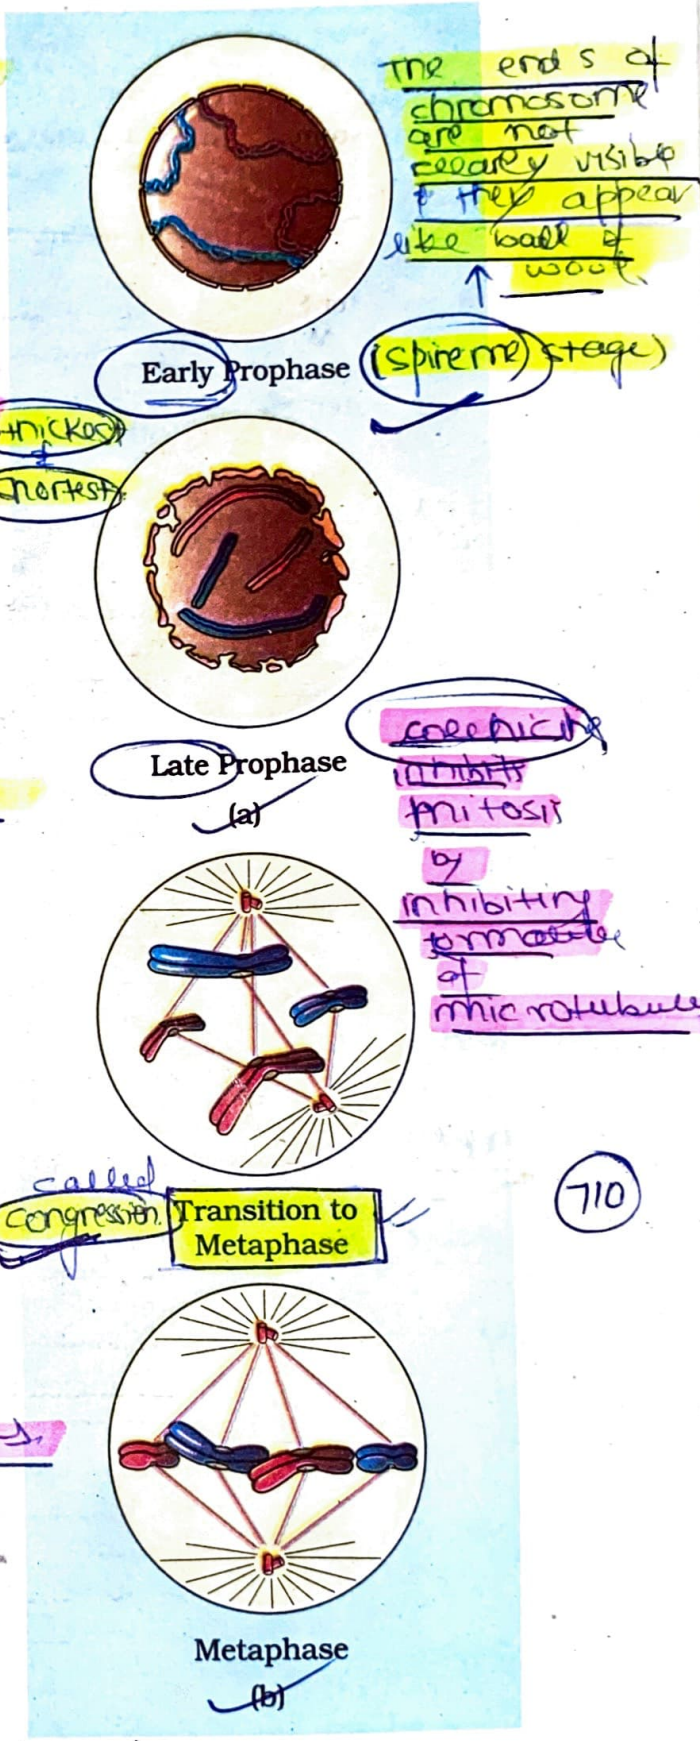 The ends of
chromosome
are not
clearly visible
& they appear
like ball of
wool.
Early Prophase (spireme) stage)
thickest
&
hortest
Late Prophase
(a)
colchicine
inhibits
mitosis
by
inhibiting
formation
of
microtubule
called
congression.
Transition to
Metaphase
710
Metaphase
(b)